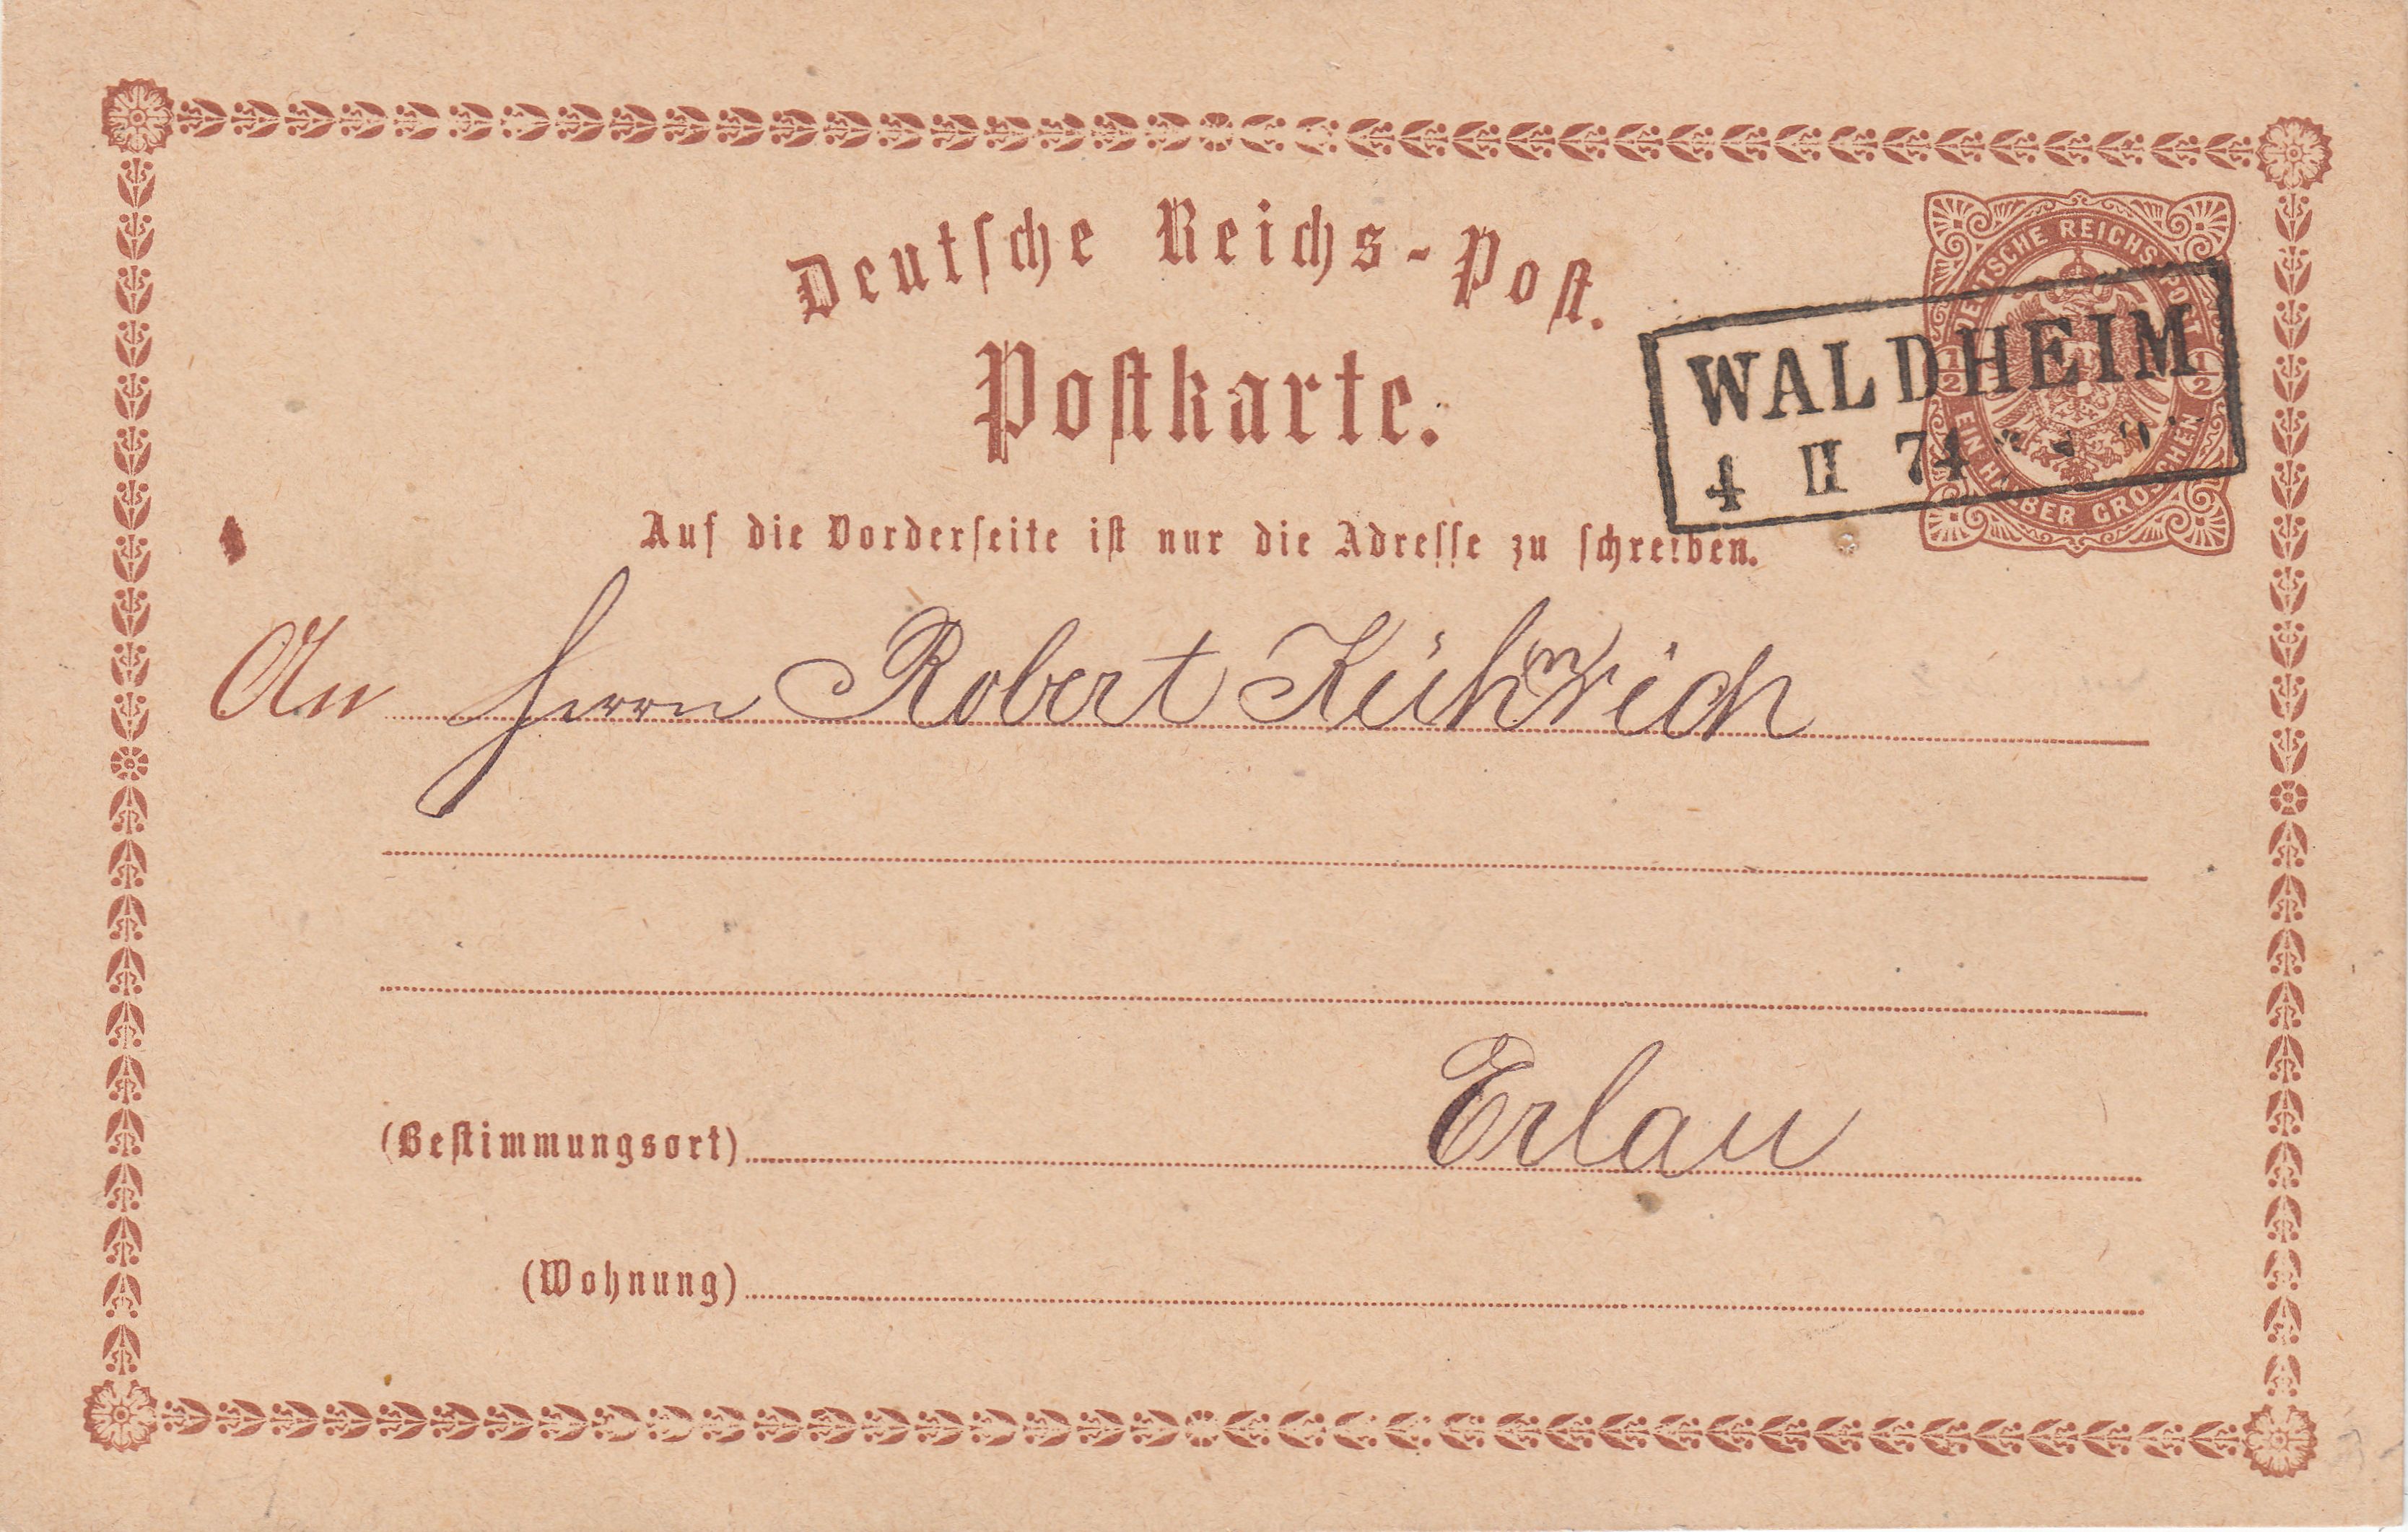 Deutsche Reichs-Post.
Postkarte.
DEUTSCHE REICHS-POST
½ ½
EIN HALBER GROSCHEN
WALDHEIM
4 II 74
Auf die Vorderseite ist nur die Adresse zu schreiben.
An Herrn Robert Kühnrich
(Bestimmungsort) Erlau
(Wohnung)